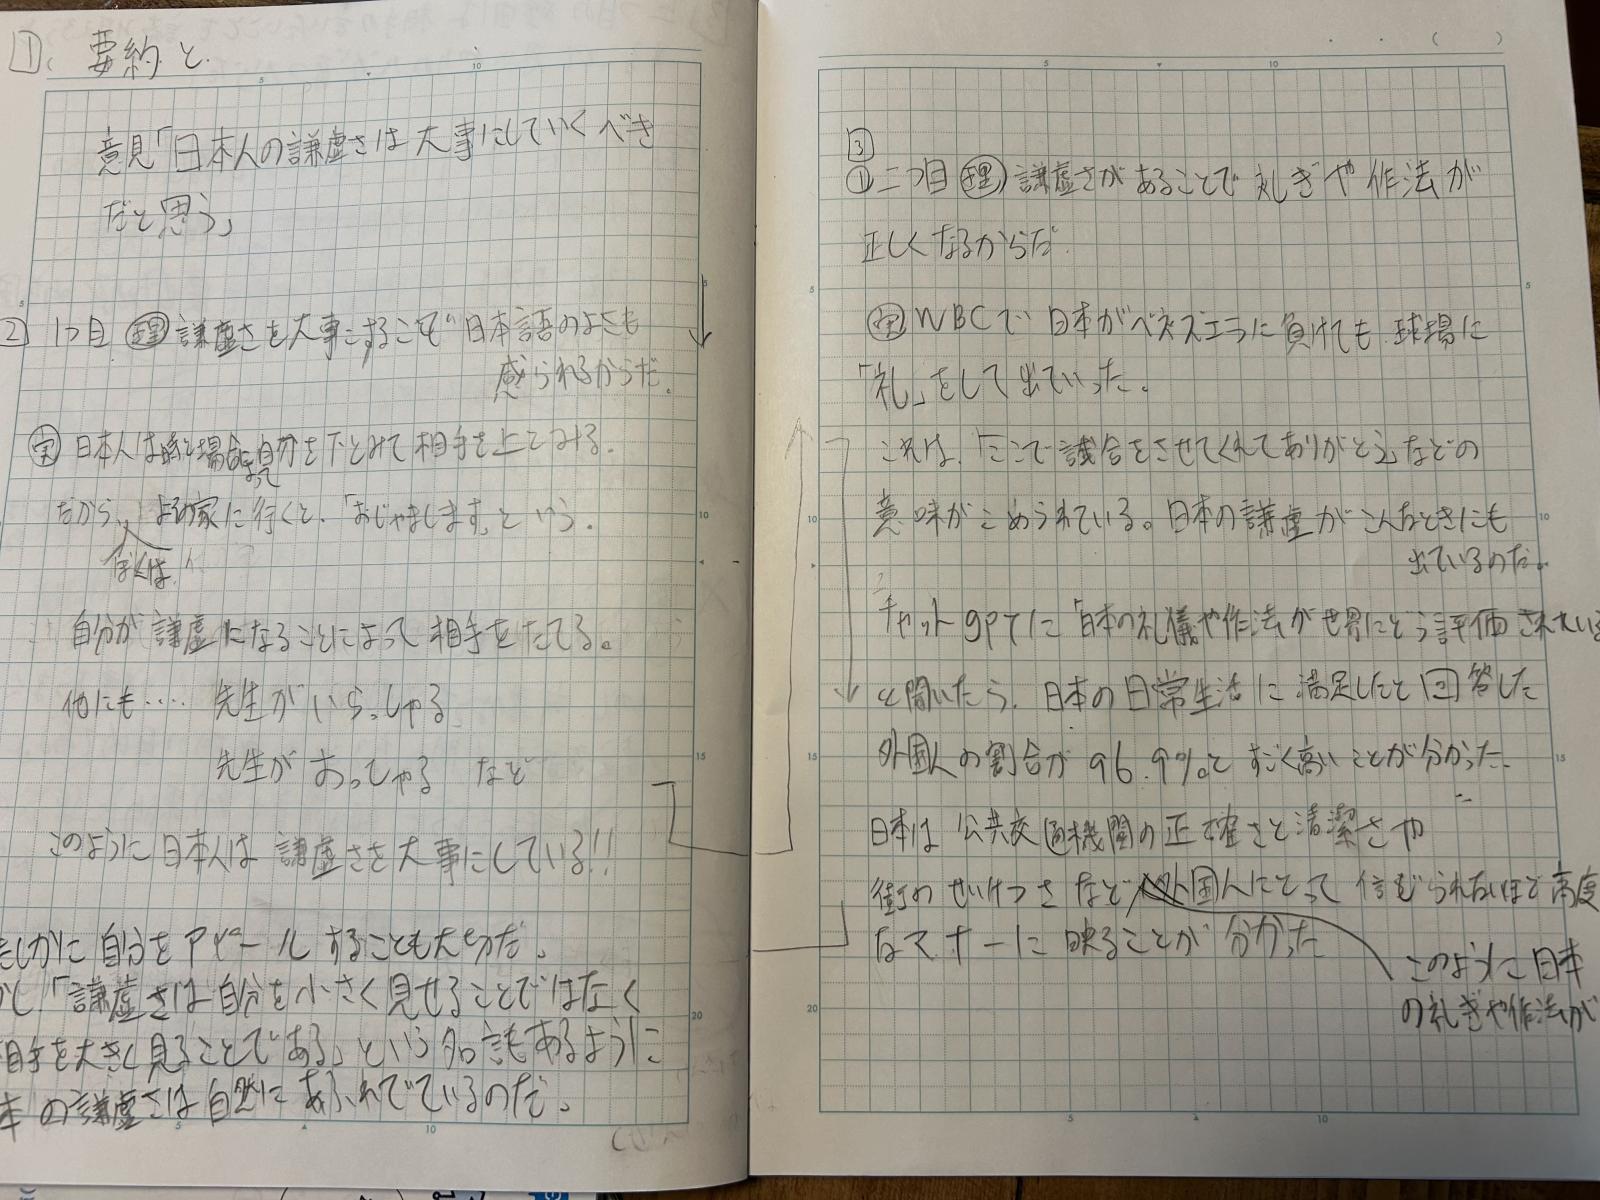 1、要約と
意見「日本人の謙虚さは大事にしていくべき
だと思う」
2 1つ目 理 謙虚さを大事にすることで日本語のよさも
感られるからだ。
実 日本人は時と場合によって自分を下とみて相手を上とみる。
だから、よその家に行くと、「おじゃまします」という。
ぼくは、
自分が謙虚になることによって相手をたてる。
他にも‥‥ 先生がいらっしゃる
先生がおっしゃる など
このように日本人は謙虚さを大事にしている!!
たしかに自分をアピールすることも大切だ。
かし「謙虚さは自分を小さく見せることではなく
相手を大きく見ることである」という名言もあるように
本の謙虚さは自然にあふれでているのだ。
( )
3
①二つ目 理 謙虚さがあることで礼ぎや作法が
正しくなるからだ。
実 WBCで日本がベネズエラに負けても球場に
「礼」をして出ていった。
これは、「ここで試合をさせてくれてありがとう」などの
意味がこめられている。日本の謙虚がこんなときにも
出ているのだ。
チャットgPTに「日本の礼儀や作法が世界にどう評価されている
と聞いたら、日本の日常生活に満足したと回答した
外国人の割合が96.9%とすごく高いことが分かった。
日本は公共交通機関の正確さと清潔さや
街のせいけつさなど外国人にとって信じられないほど高度
なマナーに映ることが分かった
このように日本
の礼ぎや作法が